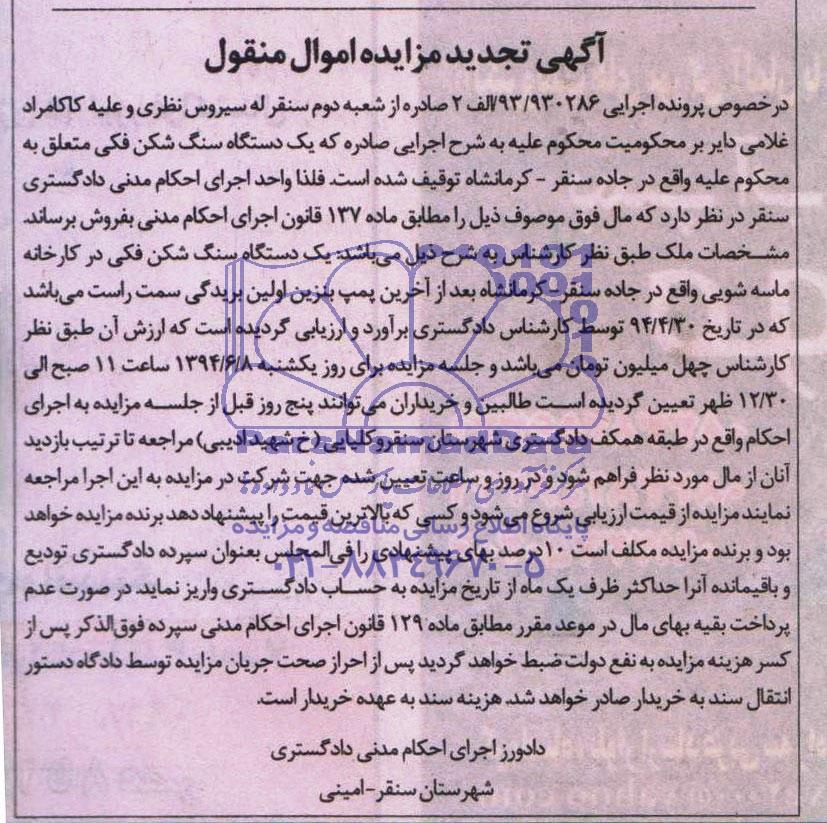 آگهی تجدید مزایده اموال منقول
درخصوص پرونده اجرایی ۹۳/۹۳۰۲۸۶/الف ۲ صادره از شعبه دوم سنقر له سیروس نظری و علیه کاکامراد
غلامی دایر بر محکومیت محکوم علیه به شرح اجرایی صادره که یک دستگاه سنگ شکن فکی متعلق به
محکوم علیه واقع در جاده سنقر - کرمانشاه توقیف شده است. فلذا واحد اجرای احکام مدنی دادگستری
سنقر در نظر دارد که مال فوق موصوف ذیل را مطابق ماده ۱۳۷ قانون اجرای احکام مدنی بفروش برساند.
مشخصات ملک طبق نظر کارشناس به شرح ذیل می‌باشد: یک دستگاه سنگ شکن فکی در کارخانه
ماسه شویی واقع در جاده سنقر - کرمانشاه بعد از آخرین پمپ بنزین اولین بریدگی سمت راست می‌باشد
که در تاریخ ۹۴/۴/۳۰ توسط کارشناس دادگستری برآورد و ارزیابی گردیده است که ارزش آن طبق نظر
کارشناس چهل میلیون تومان می‌باشد و جلسه مزایده برای روز یکشنبه ۱۳۹۴/۶/۸ ساعت ۱۱ صبح الی
۱۲/۳۰ ظهر تعیین گردیده است طالبین و خریداران می‌توانند پنج روز قبل از جلسه مزایده به اجرای
احکام واقع در طبقه همکف دادگستری شهرستان سنقروکلیایی (خ شهید ادیبی) مراجعه تا ترتیب بازدید
آنان از مال مورد نظر فراهم شود و در روز و ساعت تعیین شده جهت شرکت در مزایده به این اجرا مراجعه
نمایند مزایده از قیمت ارزیابی شروع می‌شود و کسی که بالاترین قیمت را پیشنهاد دهد برنده مزایده خواهد
بود و برنده مزایده مکلف است ۱۰درصد بهای پیشنهادی را فی‌المجلس بعنوان سپرده دادگستری تودیع
و باقیمانده آنرا حداکثر ظرف یک ماه از تاریخ مزایده به حساب دادگستری واریز نماید. در صورت عدم
پرداخت بقیه بهای مال در موعد مقرر مطابق ماده ۱۲۹ قانون اجرای احکام مدنی سپرده فوق‌الذکر پس از
کسر هزینه مزایده به نفع دولت ضبط خواهد گردید پس از احراز صحت جریان مزایده توسط دادگاه دستور
انتقال سند به خریدار صادر خواهد شد. هزینه سند به عهده خریدار است.
دادورز اجرای احکام مدنی دادگستری
شهرستان سنقر-امینی
ParsNamadData
پایگاه اطلاع رسانی مناقصه و مزایده
۰۲۱-۸۸۳۴۹۶۷۰-۵